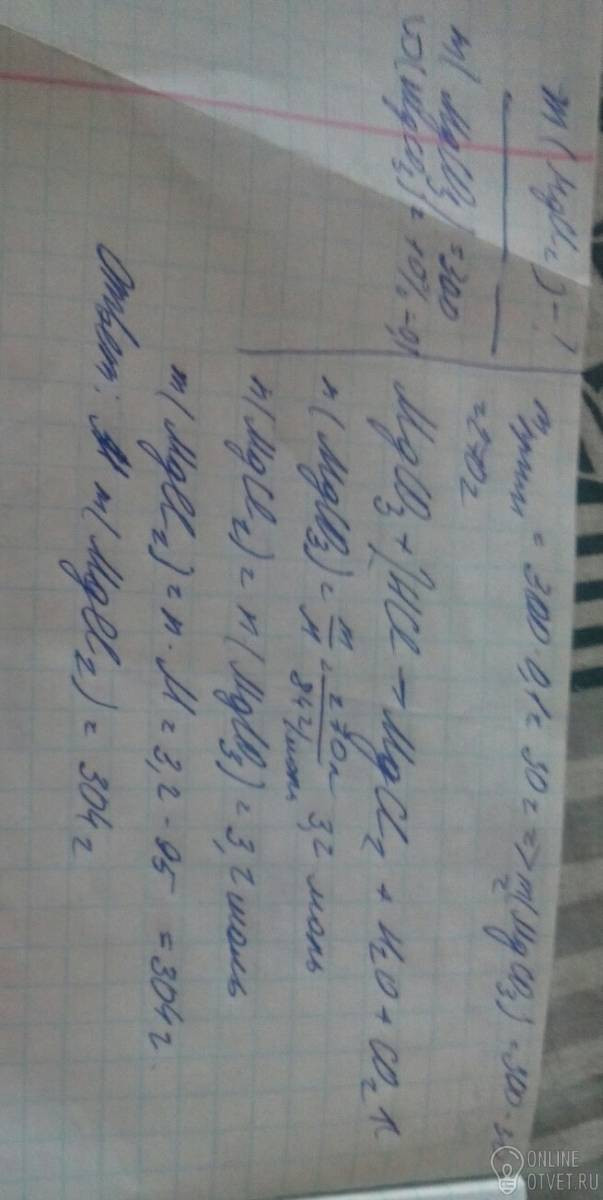 m(MgCO3) = 300
ω(MgCO3) = 10% = 0,1
m(MgCl2) - ?
mприм = 300 · 0,1 = 30г => m(MgCO3) = 300 - 30
= 270г
MgCO3 + 2HCl → MgCl2 + H2O + CO2↑
n(MgCO3) = m/M = 270г/84г/моль = 3,2 моль
n(MgCl2) = n(MgCO3) = 3,2 моль
m(MgCl2) = n · M = 3,2 · 95 = 304г.
Ответ: m(MgCl2) = 304г
ONLINE
OTVET.RU